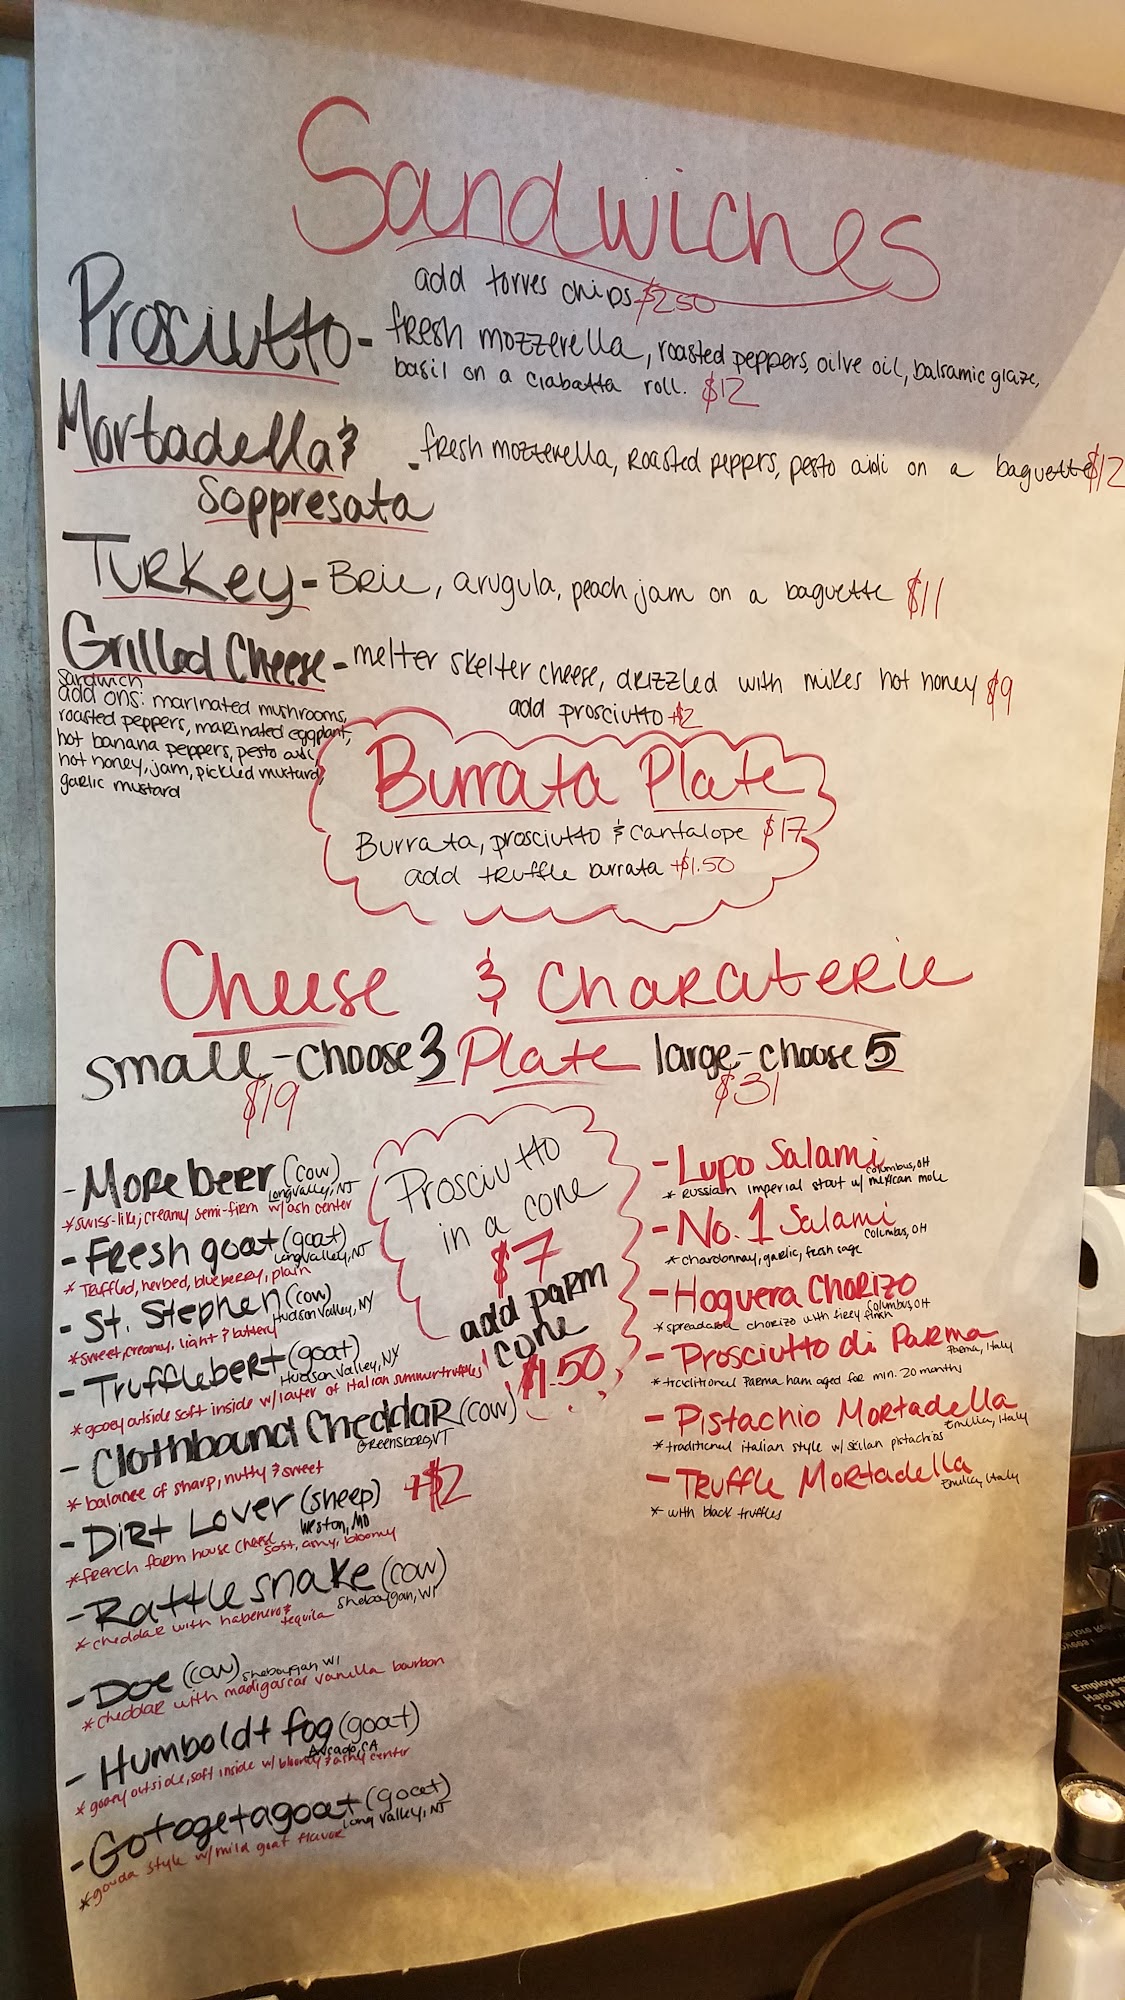 Sandwiches
add torres chips $2.50
Prosciutto - fresh mozzerella, roasted peppers, oilve oil, balsamic glaze,
basil on a ciabatta roll. $12
Mortadella & - fresh mozzerella, roasted peppers, pesto aioli on a baguette $12
Soppresata
Turkey - Brie, arugula, peach jam on a baguette $11
Grilled Cheese - melter skelter cheese, drizzled with mikes hot honey $9
add prosciutto +$2
Sandwich
add ons: marinated mushrooms,
roasted peppers, marinated eggplant,
hot banana peppers, pesto aioli,
hot honey, jam, pickled mustard,
garlic mustard
Burrata Plate
Burrata, prosciutto & cantalope $17
add truffle burrata +$1.50
Cheese & Characuterie
small - choose 3 Plate large - choose 5
$19 $31
Prosciutto
in a cone
$7
add parm
cone
$1.50
- More beer (cow)
Long Valley, NJ
*swiss-like, creamy semi-firm w/ash center
- Fresh goat (goat)
Long Valley, NJ
*Truffled, herbed, blueberry, plain
- St. Stephen (cow)
Hudson Valley, NY
*sweet, creamy, light & buttery
- Trufflebert (goat)
Hudson Valley, NY
*gooey outside soft inside w/layer of Italian summer truffles
- Clothbound Cheddar (cow)
Greensboro, VT
*balance of sharp, nutty & sweet
- Dirt Lover (sheep) +$2
Weston, MO
*french farm house cheese
soft, ashy, bloomy
- Rattle snake (cow)
Sheboygan, WI
*cheddar with habenero &
tequila
- Doe (cow) Sheboygan WI
*cheddar with madigascar vanilla bourbon
- Humboldt fog (goat)
Arcado, CA
*gooey outside, soft inside w/ bloomy & ashy center
- Gotogetagoat (goat)
Long Valley, NJ
*gouda style w/mild goat flavor
- Lupo Salami
Columbus, OH
*Russian imperial stout w/ mexican mole
- No. 1 Salami
Columbus, OH
*chardonnay, garlic, fresh sage
- Hoguera Chorizo
Columbus, OH
*spreadable chorizo with fiery finish
- Prosciutto di Parma
Parma, Italy
*traditional Parma ham aged for min. 20 months
- Pistachio Mortadella
Emilia, Italy
*traditional italian style w/ sicilan pistachios
- Truffle Mortadella
Emilia, Italy
*with black truffles
Employees
Hands
To W